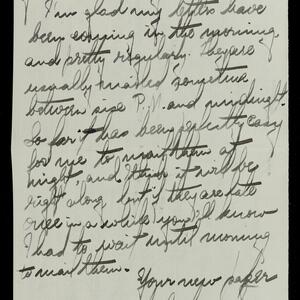 I'm glad my letters have
been coming in the morning
and pretty regularly. They are
usually mailed sometime
between six P.M. and midnight.
So far it has been perfectly easy
for me to mail them at
night, and I think it will be
right along, but if they are late
once in a while you'll know
I had to wait until morning
to mail them.
Your new paper